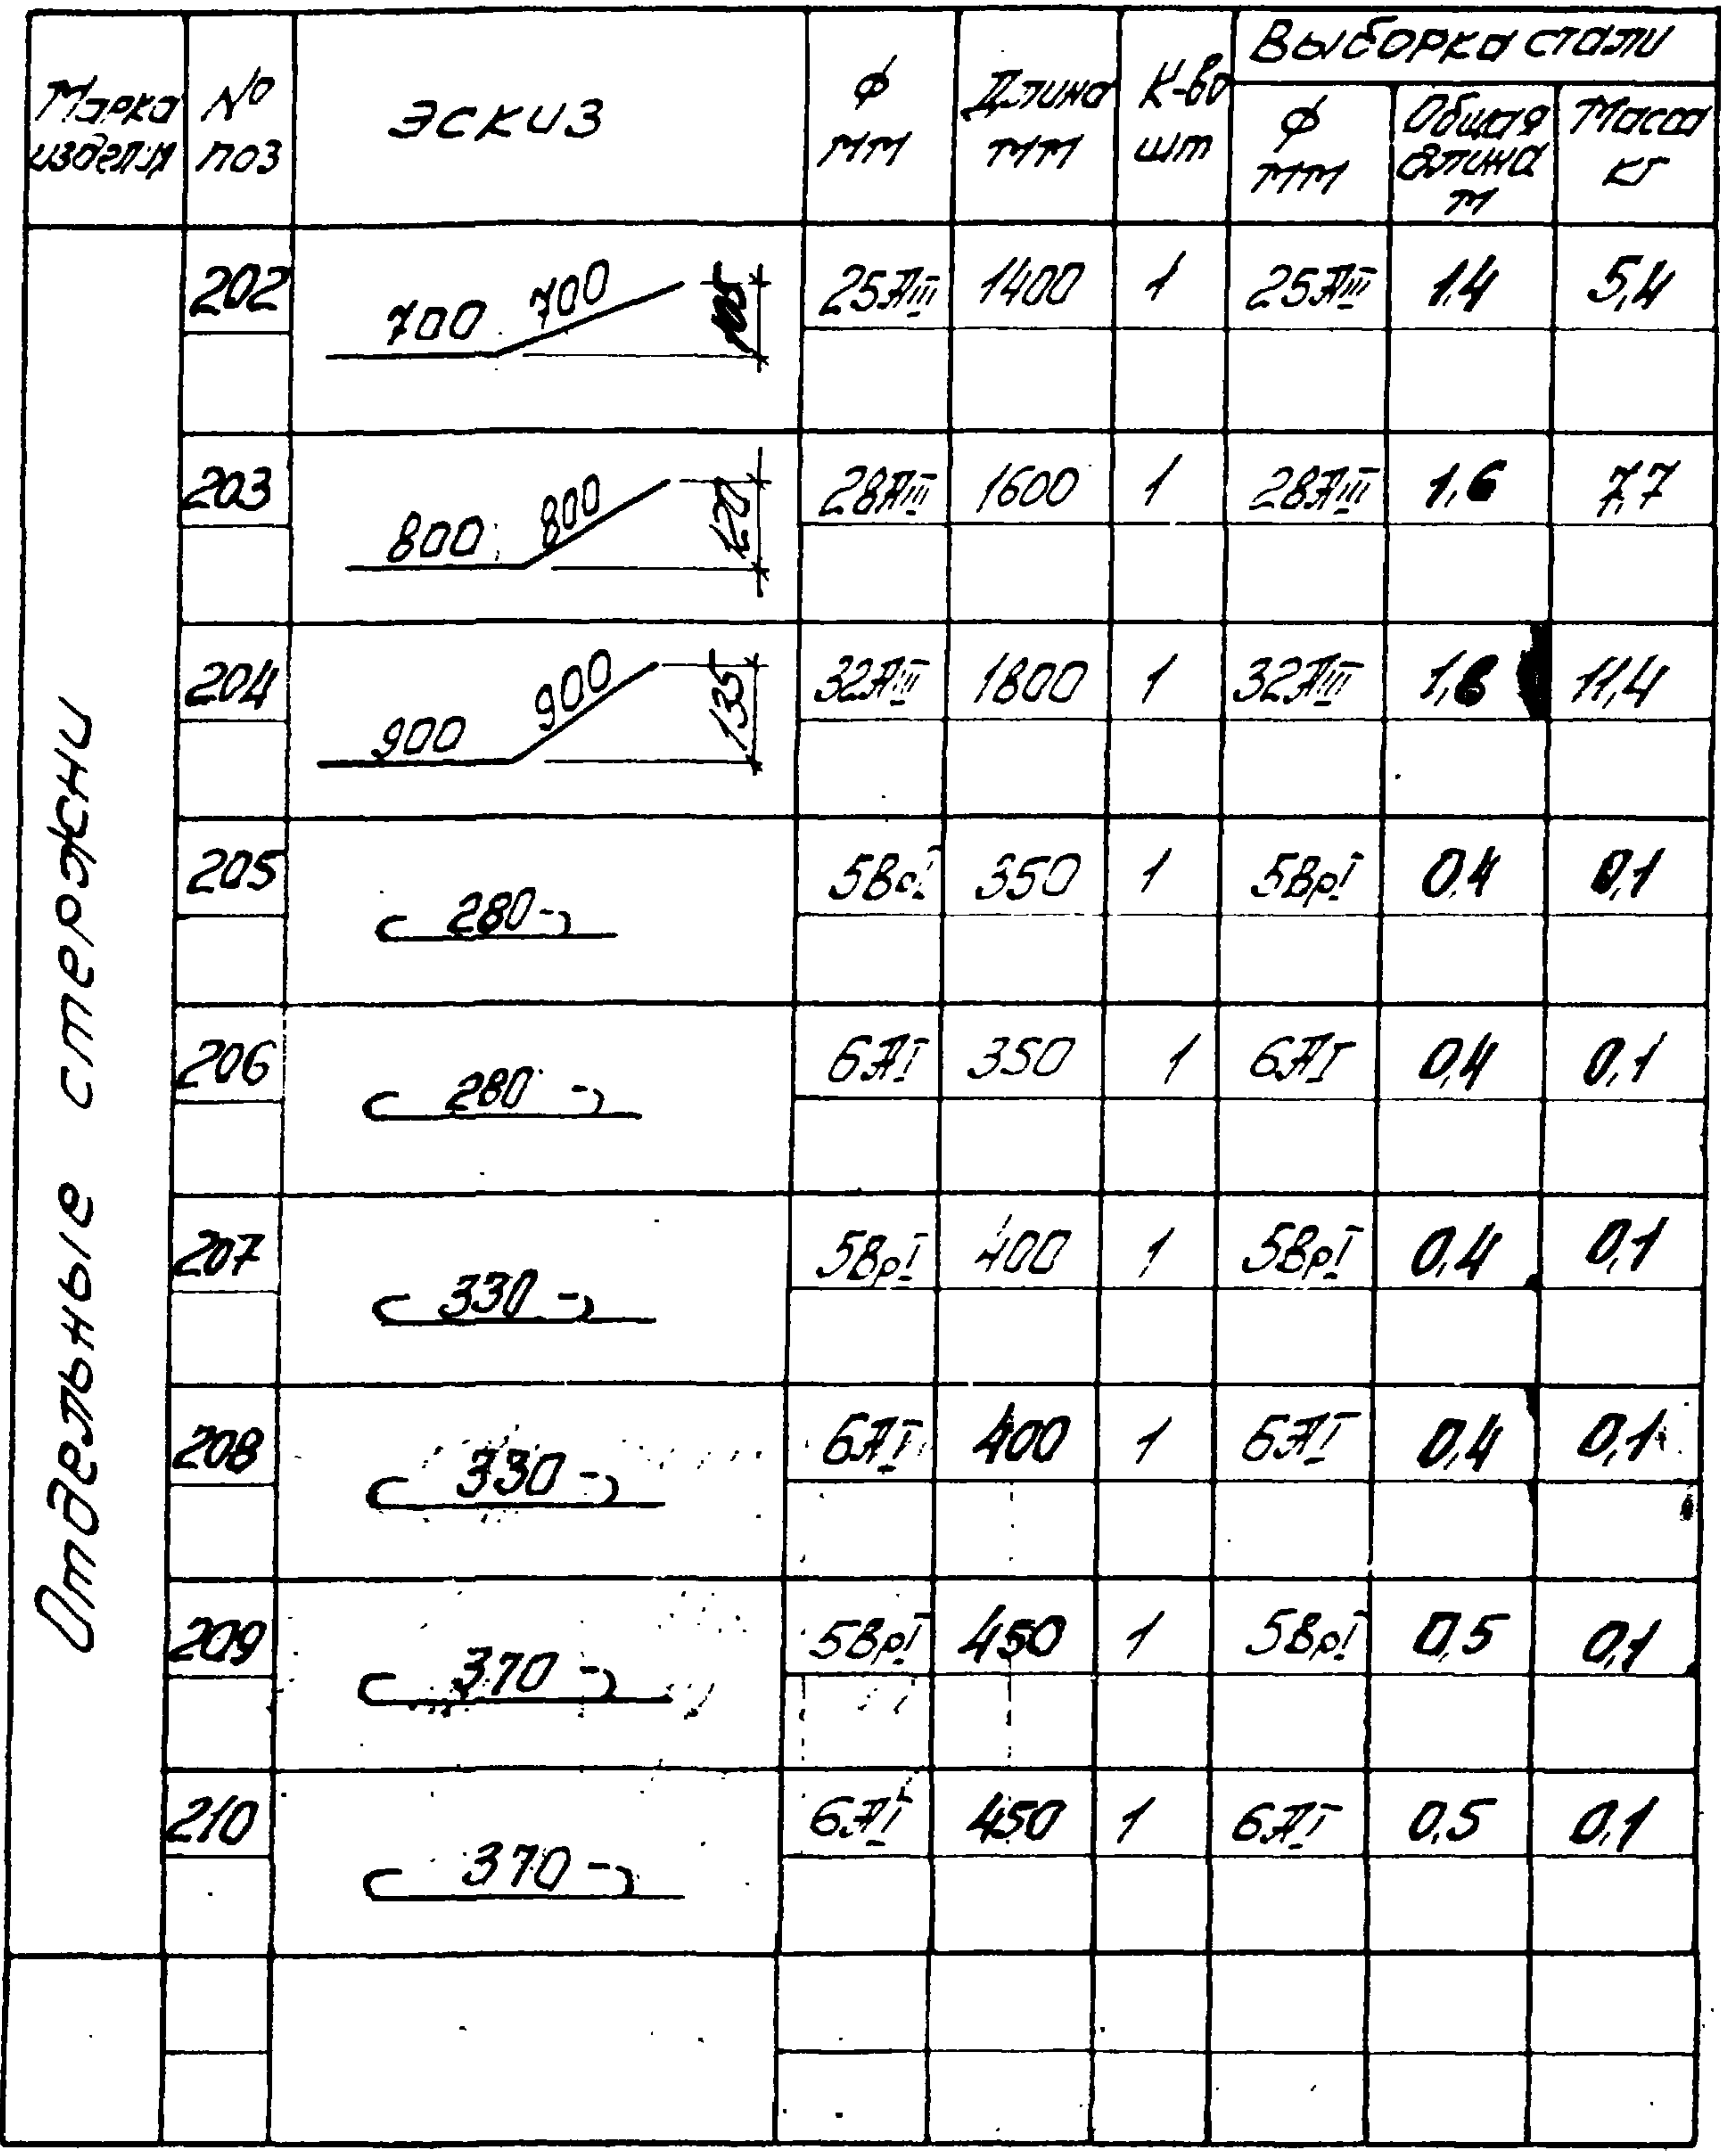 Марка изделия | № поз | Эскиз | Ф мм | Длина мм | К-во шт | Выборка стали
Ф мм | Общая длина м | Масса кг
Отдельные стержни
202 | 700 700 105 | 25АIII | 1400 | 1 | 25АIII | 1,4 | 5,4
203 | 800 800 120 | 28АIII | 1600 | 1 | 28АIII | 1,6 | 7,7
204 | 900 900 135 | 32АIII | 1800 | 1 | 32АIII | 1,8 | 11,4
205 | 280 | 5ВрI | 350 | 1 | 5ВрI | 0,4 | 0,1
206 | 280 | 6АI | 350 | 1 | 6АI | 0,4 | 0,1
207 | 330 | 5ВрI | 400 | 1 | 5ВрI | 0,4 | 0,1
208 | 330 | 6АI | 400 | 1 | 6АI | 0,4 | 0,1
209 | 370 | 5ВрI | 450 | 1 | 5ВрI | 0,5 | 0,1
210 | 370 | 6АI | 450 | 1 | 6АI | 0,5 | 0,1